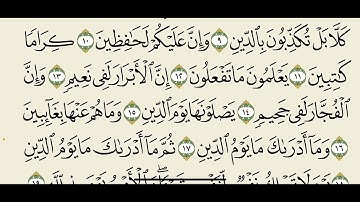 كَلَّا بَلْ تُكَذِّبُونَ بِالدِّينِ ٩ وَإِنَّ عَلَيْكُمْ لَحَافِظِينَ ١٠ كِرَامًا
كَاتِبِينَ ١١ يَعْلَمُونَ مَا تَفْعَلُونَ ١٢ إِنَّ الْأَبْرَارَ لَفِي نَعِيمٍ ١٣ وَإِنَّ
الْفُجَّارَ لَفِي جَحِيمٍ ١٤ يَصْلَوْنَهَا يَوْمَ الدِّينِ ١٥ وَمَا هُمْ عَنْهَا بِغَائِبِينَ
١٦ وَمَا أَدْرَاكَ مَا يَوْمُ الدِّينِ ١٧ ثُمَّ مَا أَدْرَاكَ مَا يَوْمُ الدِّينِ